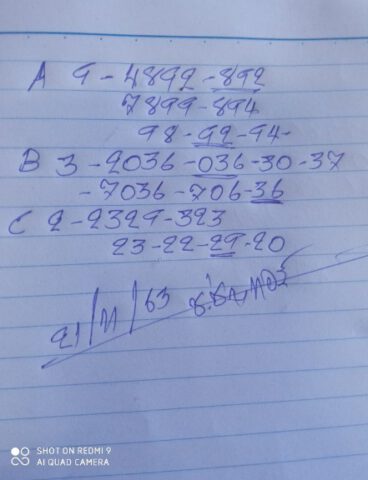 A 9 - 4892 - 892
7899 - 894
98 - 99 - 94 -
B 3 - 2036 - 036 - 30 - 37
- 7036 - 706 - 36
C 2 - 2329 - 323
23 - 22 - 29 - 20
21/11/63
SHOT ON REDMI 9
AI QUAD CAMERA